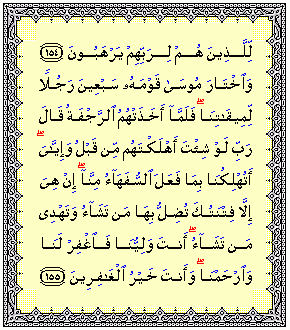 لِّلَّذِينَ هُمْ لِرَبِّهِمْ يَرْهَبُونَ ﴿١٥٤﴾
وَٱخْتَارَ مُوسَىٰ قَوْمَهُۥ سَبْعِينَ رَجُلًا
لِّمِيقَٰتِنَا ۖ فَلَمَّآ أَخَذَتْهُمُ ٱلرَّجْفَةُ قَالَ
رَبِّ لَوْ شِئْتَ أَهْلَكْتَهُم مِّن قَبْلُ وَإِيَّٰىَ ۖ
أَتُهْلِكُنَا بِمَا فَعَلَ ٱلسُّفَهَآءُ مِنَّآ ۖ إِنْ هِىَ
إِلَّا فِتْنَتُكَ تُضِلُّ بِهَا مَن تَشَآءُ وَتَهْدِى
مَن تَشَآءُ ۖ أَنتَ وَلِيُّنَا فَٱغْفِرْ لَنَا
وَٱرْحَمْنَا ۖ وَأَنتَ خَيْرُ ٱلْغَٰفِرِينَ ﴿١٥٥﴾